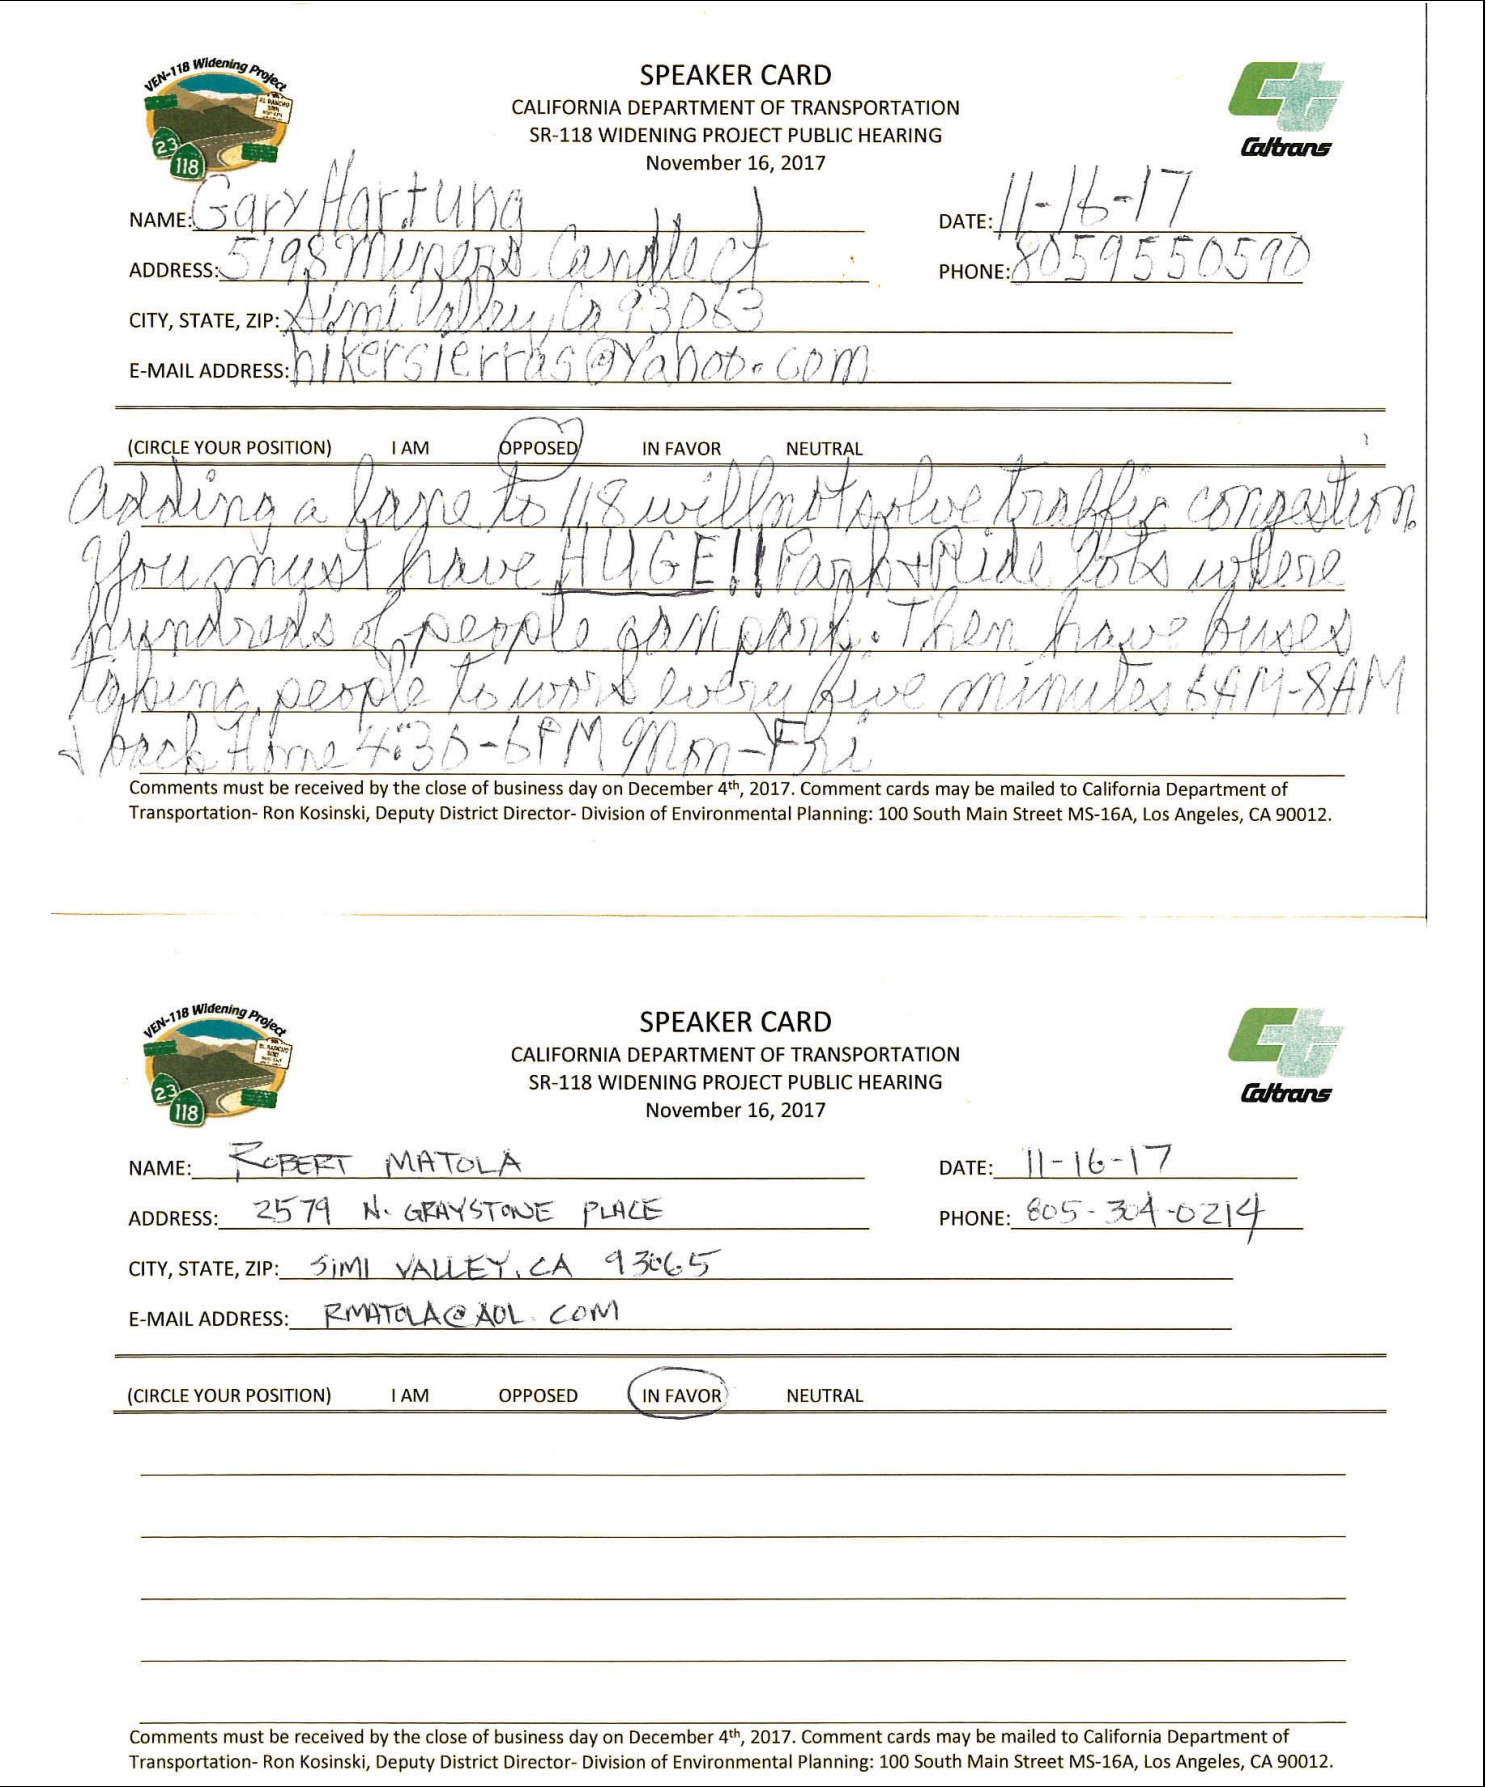 VEN-118 Widening Project
23
118
SPEAKER CARD
CALIFORNIA DEPARTMENT OF TRANSPORTATION
SR-118 WIDENING PROJECT PUBLIC HEARING
November 16, 2017
Caltrans
NAME: Gary Hartung DATE: 11-16-17
ADDRESS: 5198 Miners Candle Ct PHONE: 8059550590
CITY, STATE, ZIP: Simi Valley, Ca 93063
E-MAIL ADDRESS: hikersierras@yahoo.com
(CIRCLE YOUR POSITION) I AM OPPOSED IN FAVOR NEUTRAL
Adding a lane to 118 will not solve traffic congestion.
You must have HUGE!! Park + Ride lots where
hundreds of people can park. Then have buses
taking people to work every five minutes 6AM-8AM
+ back Home 4:30-6PM Mon-Fri
Comments must be received by the close of business day on December 4th, 2017. Comment cards may be mailed to California Department of
Transportation- Ron Kosinski, Deputy District Director- Division of Environmental Planning: 100 South Main Street MS-16A, Los Angeles, CA 90012.
VEN-118 Widening Project
23
118
SPEAKER CARD
CALIFORNIA DEPARTMENT OF TRANSPORTATION
SR-118 WIDENING PROJECT PUBLIC HEARING
November 16, 2017
Caltrans
NAME: ROBERT MATOLA DATE: 11-16-17
ADDRESS: 2579 N. GRAYSTONE PLACE PHONE: 805-304-0214
CITY, STATE, ZIP: SIMI VALLEY, CA 93065
E-MAIL ADDRESS: RMATOLA@AOL.COM
(CIRCLE YOUR POSITION) I AM OPPOSED IN FAVOR NEUTRAL
Comments must be received by the close of business day on December 4th, 2017. Comment cards may be mailed to California Department of
Transportation- Ron Kosinski, Deputy District Director- Division of Environmental Planning: 100 South Main Street MS-16A, Los Angeles, CA 90012.